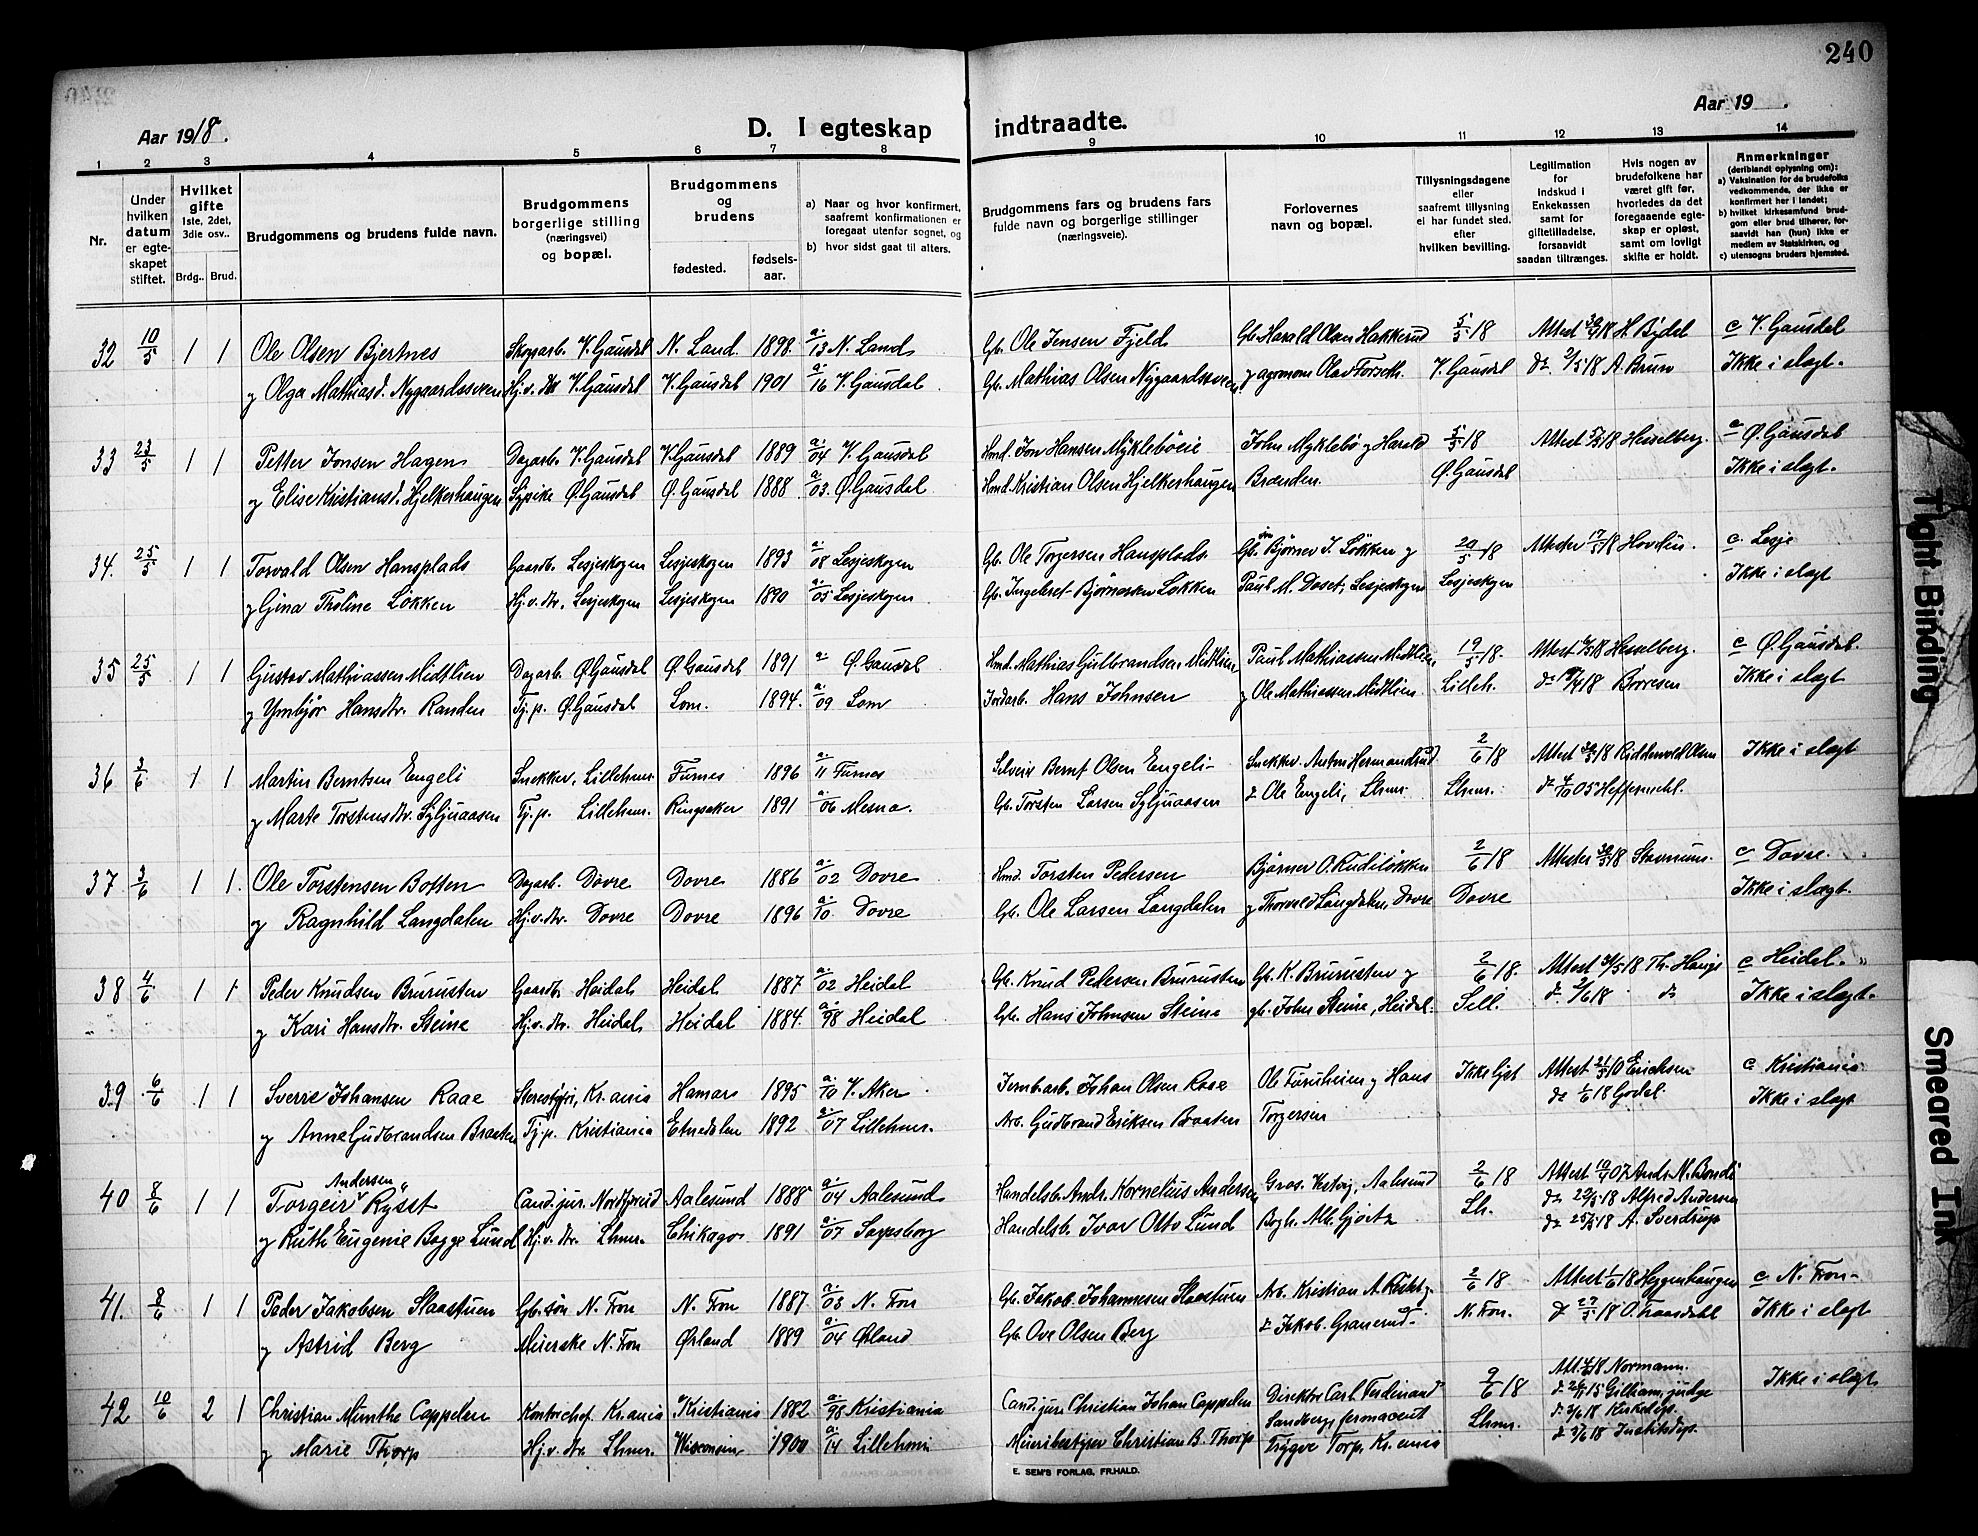 240
Aar 1918.
D. I egteskap indtraadte.
Aar 19 .
1 2 3 4 5 6 7 8 9 10 11 12 13 14
Nr.
Under hvilken datum er egteskapet stiftet.
Hvilket gifte 1ste, 2det, 3die osv..
Brdg.. Brud.
Brudgommens og brudens fulde navn.
Brudgommens borgerlige stilling (næringsvei) og bopæl.
Brudgommens og brudens
fødested. fødselsaar.
a) Naar og hvor konfirmert, saafremt konfirmationen er foregaat utenfor sognet, og
b) hvor sidst gaat til alters.
Brudgommens fars og brudens fars fulde navn og borgerlige stillinger (næringsveie).
Forlovernes navn og bopæl.
Tillysningsdagene eller saafremt tillysning ei har fundet sted, efter hvilken bevilling.
Legitimation for indskud i Enkekassen samt for giftetilladelse, forsaavidt saadan tiltrænges.
Hvis nogen av brudefolkene har været gift før, hvorledes da det foregaaende egteskap er opløst, samt om lovligt skifte er holdt.
Anmerkninger (deriblandt oplysning om):
a) Vaksination for de brudefolks vedkommende, der ikke er konfirmert her i landet;
b) hvilket kirkesamfund brudgom eller brud tilhører, forsaavidt han (hun) ikke er medlem av Statskirken, og
c) utensogns bruders hjemsted.
32 10/5 1 1 Ole Olsen Bjertnes Skogarb. V. Gausdal N. Land. 1898. a. 13 N. Land Gb. Ole Jensen Fjeld Gb. Harald Olsen Hakkerud 5/5 18 Attest 30/4 18 H. Bydel c V. Gausdal
y Olga Mathiasd. Nygaardssveen Hj.v. dtr V. Gausdal V. Gausdal 1901 a. 16 V. Gausdal Gb. Mathias Olsen Nygaardssveen y agronom Olav Forseth. V. Gausdal do 2/5 18 A. Bruun Ikke i slægt.
33 23/5 1 1 Petter Jonsen Hagen Dagarb. V. Gausdal V. Gausdal 1889 a. 04 V. Gausdal Hmd. Jon Hansen Mykleböeie John Myklebö y Harald 5/5 18 Attest 5/5 18 Hesselberg. c Ø. Gausdal
y Elise Kristiansd. Hjelkerhaugen Sypike Ø. Gausdal Ø. Gausdal 1888 a. 03. Ø. Gausdal Hmd. Kristian Olsen Hjelkerhaugen Brænden. Ø. Gausdal Ikke i slægt.
34. 25/5 1 1 Torvald Olsen Hansplads Gaardb. Lesjeskogen Lesjeskogen 1893 a. 08 Lesjeskogen Gb. Ole Torgersen Hansplads Gb. Björner J. Løkken y 20/5 18 Attester 17/5 18 Hovdin. c. Lesje
y Gjina Tholine Løkken Hj.v. dtr. Lesjeskogen Lesjeskogen 1890 a. 05 Lesjeskogen Gb. Ingebret Björnersen Løkken Paul M. Doset, Lesjeskogen Lesjeskogen Ikke i slægt
35 25/5 1 1 Gustav Mathiassen Midtlien Dagarb. Ø. Gausdal Ø. Gausdal 1891 a. Ø. Gausdal Hmd. Mathias Gulbrandsen Midtlien Paul Mathiassen Midtlien 19/5 18. Attest 18 Hesselberg. c Ø. Gausdal.
y Ymbjør Hansdtr. Randen Tj.p. Ø. Gausdal Lom. 1894. a. 09 Lom Jordarb. Hans Johnsen y Ole Mathiassen Midtlien Lilleh. do 18 Børresen Ikke i slægt
36 3/6 1 1 Martin Berntsen Engeli Snekker, Lillehmr. Furnes 1896 a. 11 Furnes Selveir Bernt Olsen Engeli Snekker Anton Hermandrud 2/6 18 Attest 30/5 18 Riddervold Olsen Ikke i slægt
y Marte Torstensdtr. Syljuaasen Tj.p. Lillehmr. Ringsaker 1891 a. 06 Mesna. Gb. Torsten Larsen Syljuaasen & Ole Engeli, Lhmr. Lhmr. do 05 Heffermehl.
37 3/6 1 1. Ole Torstensen Botten Dagarb. Dovre Dovre 1886 a. 02 Dovre Hmd. Torsten Pedersen Björner O. Rudiløkken 2/6 18 Attester 30/5 18 Stavnum. c Dovre.
y Ragnhild Langdalen Hj.v. dtr. Dovre Dovre 1896 a. 10. Dovre Gb. Ole Larsen Langdalen y Thorvald Langdalen, Dovre Dovre Ikke i slægt.
38 4/6 1 1 Peder Knudsen Bruristen Gaardb. Heidal Heidal 1887 a. 02 Heidal Gb. Knud Pedersen Bruristen Gb. K. Bruristen y 2/6 18. Attest 18 Th. Hauge c Heidal.
y Kari Hansdtr. Steine Hj.v. dtr. Heidal Heidal 1884. a. 98 Heidal Gb. Hans Johnsen Steine gb. John Steine, Heidal. Sell. do 2/6 18 do Ikke i slægt.
39 6/6 1 1 Sverre Johansen Raae Stereotypi, Kr.ania Hamar 1895 a. 10 V. Aker Jernb.arb. Johan Olsen Raae Ole Furuheim y Hans Ikke lyst Attest 21/5 10 Erichsen c Kristiania
y Anne Gudbrandsen Braaten Tj.p. Kristiania Etnedalen 1892 a. 07 Lillehmr. Arb. Gudbrand Eriksen Braaten Torgersen do 1/6 18 Godal. Ikke i slægt
40 8/6 1 1 Torgeir Andersen Rysst Cand. jur. Nordfjoreid Aalesund 1888 a. 04 Aalesund Handelsb. Andr. Kornelius Andersen Gros. Vestvig, Aalesund 2/6 18 Attest 07 Andr. N. Bondi
y Ruth Eugenie Bagge Lund Hj.v. dtr. Lhmr. Chikago 1891 a. 07 Sarpsborg Handelsb. Ivar Otto Lund Bogh. Alb. Gjørtz Lh. do 29/5 18 Alfred Andersen
do 25/5 18 A. Sverdrup
41. 8/6 1 1 Peder Jakobsen Slaastuen Gb. søn N. Fron N. Fron 1887 a. 03 N. Fron Gb. Jakob Johannesen Slaastuen Arb. Kristian A. 2/6 18 Attest 1/6 18 Heggenhaugen c N. Fron
y Astrid Berg Meierske N. Fron Ørland 1889 a. 04 Ørland Gb. Ove Olsen Berg & Jakob Granerud N. Fron. do 27/5 18 O. Faasdahl Ikke i slægt
42 10/6 2 1 Christian Munthe Cappelen Kontorchef Kr.ania Kristiania 1882 a. 98 Kristiania Cand. jur. Christian Johan Cappelen Direktör Carl Ferdinand 9/6 18 Att. 18 Normann. Ikke i slægt
y Marie Thorp Hj.v. dtr Lhmr. Wisconsin 1900 a. 14 Lillehmr Meieribestyrer Christian B. Thorp Sandberg, farmaceut Lhmr. do 15 Gilliam, judge
Trygve Torp, Kr.ania do 3/6 18 Kirkedep.
do 3/6 18 Justitsdep.
E. SEM'S FORLAG, FR.HALD.
Tight Binding
Smeared Ink